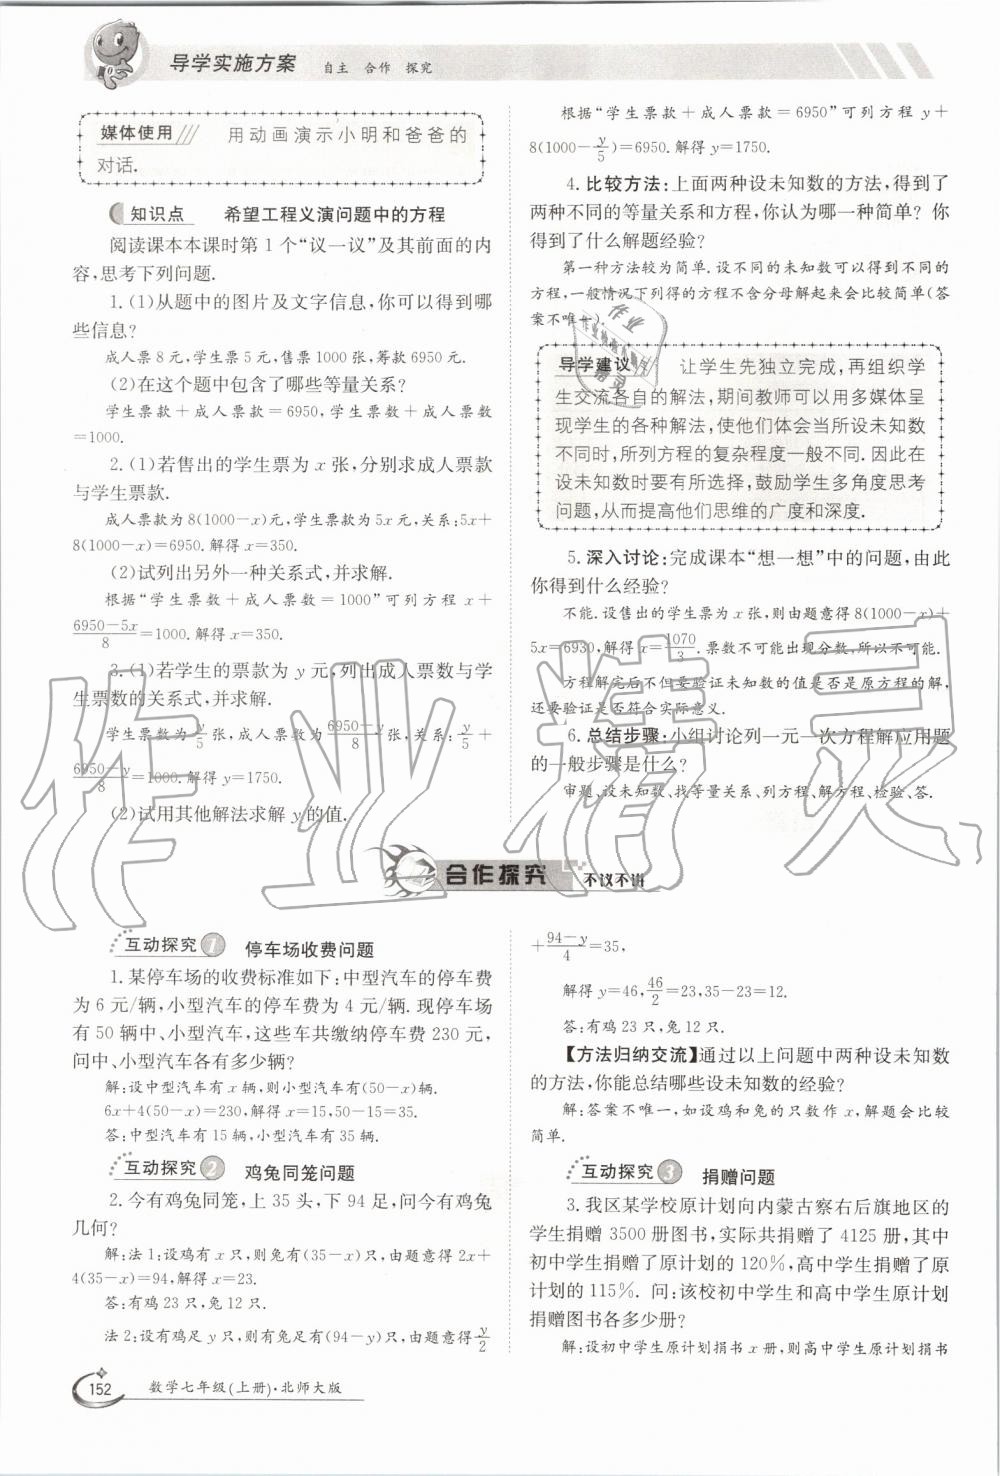 导学实施方案 自主 合作 探究
媒体使用 用动画演示小明和爸爸的
对话.
知识点 希望工程义演问题中的方程
阅读课本本课时第 1 个“议一议”及其前面的内
容,思考下列问题.
1.(1)从题中的图片及文字信息,你可以得到哪
些信息?
成人票 8 元,学生票 5 元,售票 1000 张,筹款 6950 元.
(2)在这个题中包含了哪些等量关系?
学生票款+成人票款=6950,学生票数+成人票数
=1000.
2.(1)若售出的学生票为 x 张,分别求成人票款
与学生票款.
成人票款为 8(1000-x)元,学生票款为5x元,关系:5x+
8(1000-x)=6950.解得 x=350.
(2)试列出另外一种关系式,并求解.
根据“学生票数+成人票数=1000”可列方程 x+
(6950-5x)/8=1000.解得 x=350.
3.(1)若学生的票款为 y 元,列出成人票数与学
生票数的关系式,并求解.
学生票数为 y/5 张,成人票数为 (6950-y)/8 张,关系: y/5 +
(6950-y)/8=1000.解得 y=1750.
(2)试用其他解法求解 y 的值.
根据“学生票款+成人票款=6950”可列方程 y+
8(1000-y/5)=6950.解得 y=1750.
4.比较方法:上面两种设未知数的方法,得到了
两种不同的等量关系和方程,你认为哪一种简单? 你
得到了什么解题经验?
第一种方法较为简单.设不同的未知数可以得到不同的
方程,一般情况下列得的方程不含分母解起来会比较简单(答
案不唯一).
导学建议 让学生先独立完成,再组织学
生交流各自的解法,期间教师可以用多媒体呈
现学生的各种解法,使他们体会当所设未知数
不同时,所列方程的复杂程度一般不同.因此在
设未知数时要有所选择,鼓励学生多角度思考
问题,从而提高他们思维的广度和深度.
5.深入讨论:完成课本“想一想”中的问题,由此
你得到什么经验?
不能.设售出的学生票为 x 张,则由题意得 8(1000-x)+
5x=6930,解得 x=1070/3.票数不可能出现分数,所以不可能.
方程解完后不但要验证未知数的值是否是原方程的解,
还要验证是否符合实际意义.
6.总结步骤:小组讨论列一元一次方程解应用题
的一般步骤是什么?
审题、设未知数、找等量关系、列方程、解方程、检验、答.
合作探究 不议不讲
互动探究 1 停车场收费问题
1.某停车场的收费标准如下:中型汽车的停车费
为 6 元/辆,小型汽车的停车费为 4 元/辆.现停车场
有 50 辆中、小型汽车,这些车共缴纳停车费 230 元,
问中、小型汽车各有多少辆?
解:设中型汽车有 x 辆,则小型汽车有(50-x)辆.
6x+4(50-x)=230,解得 x=15,50-15=35.
答:中型汽车有 15 辆,小型汽车有 35 辆.
互动探究 2 鸡兔同笼问题
2.今有鸡兔同笼,上 35 头,下 94 足,问今有鸡兔
几何?
解:法 1:设鸡有 x 只,则兔有(35-x)只,由题意得 2x+
4(35-x)=94,解得 x=23.
答:有鸡 23 只,兔 12 只.
法 2:设有鸡足 y 只,则有兔足有(94-y)只,由题意得 y/2
+(94-y)/4=35,
解得 y=46,46/2=23,35-23=12.
答:有鸡 23 只,兔 12 只.
【方法归纳交流】通过以上问题中两种设未知数
的方法,你能总结哪些设未知数的经验?
解:答案不唯一,如设鸡和兔的只数作 x,解题会比较
简单.
互动探究 3 捐赠问题
3.我区某学校原计划向内蒙古察右后旗地区的
学生捐赠 3500 册图书,实际共捐赠了 4125 册,其中
初中学生捐赠了原计划的 120%,高中学生捐赠了原
计划的 115%. 问:该校初中学生和高中学生原计划
捐赠图书各多少册?
解:设初中学生原计划捐书 x 册,则高中学生原计划捐书
152 数学七年级(上册)·北师大版
作业精灵
作业
精灵